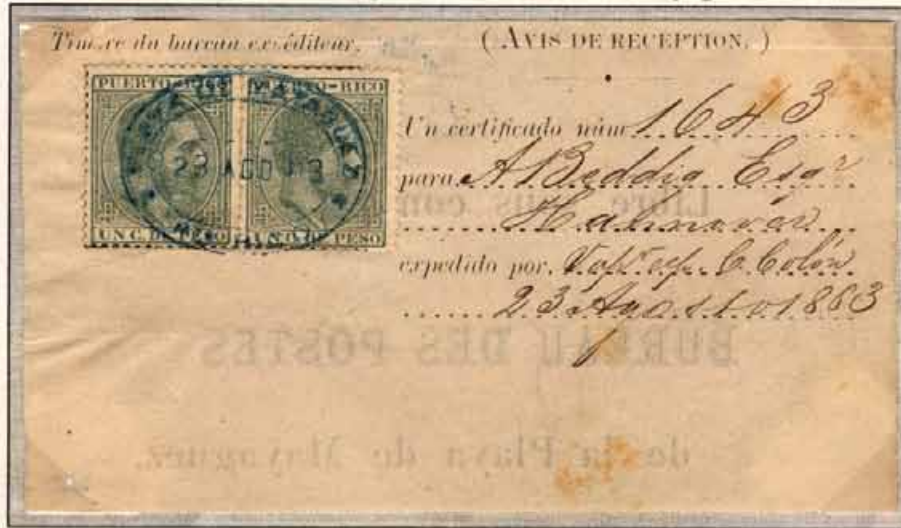 Timbre du bureau expéditeur.
(AVIS DE RECEPTION.)
PUERTO-RICO PUERTO-RICO
PLAYA DE MAYAGUEZ
23 AGO 83
UN C. DE PESO UN C. DE PESO
Un certificado núm 1643
para A Beddig Esqr
expedido por Vapr esp. C. Colón
23 Agosto 1883
Libre
BUREAU DES POSTES
de la Playa de Mayaguez.